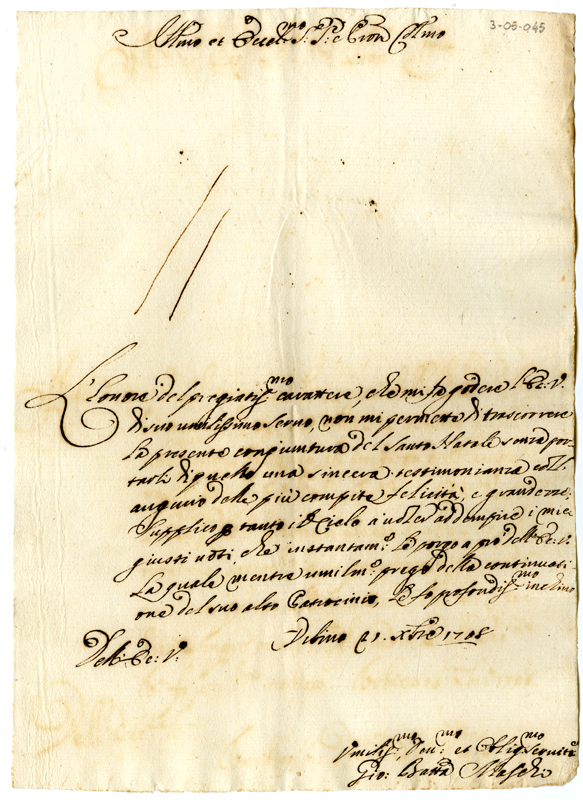 3-05-045
Ill.mo et Ecc.mo S.r S.r e Pron Col.mo
L'honore del pregiatiss.mo carattere, che mi fa godere l'Ec: V.
di suo umilissimo servo, non mi permette di trascorrere
la presente congiuntura del Santo Natale senza por-
tarle di quello una sincera testimonianza coll'
augurio delle più compite felicità, e grandezze.
Supplico p tanto il Cielo a voler addempire i miei
giusti voti, che instantam.e le porgo a pro dell'Ec: V.
La quale mentre umilm.e prego della continuati-
one del suo alto Patrocinio, le fo profondiss.mo inchino
Dell'Ec: V.
21 Xbre 1708
Umiliss.mo, Dev.mo et Oblig.mo Servit.e
Gio: Batta